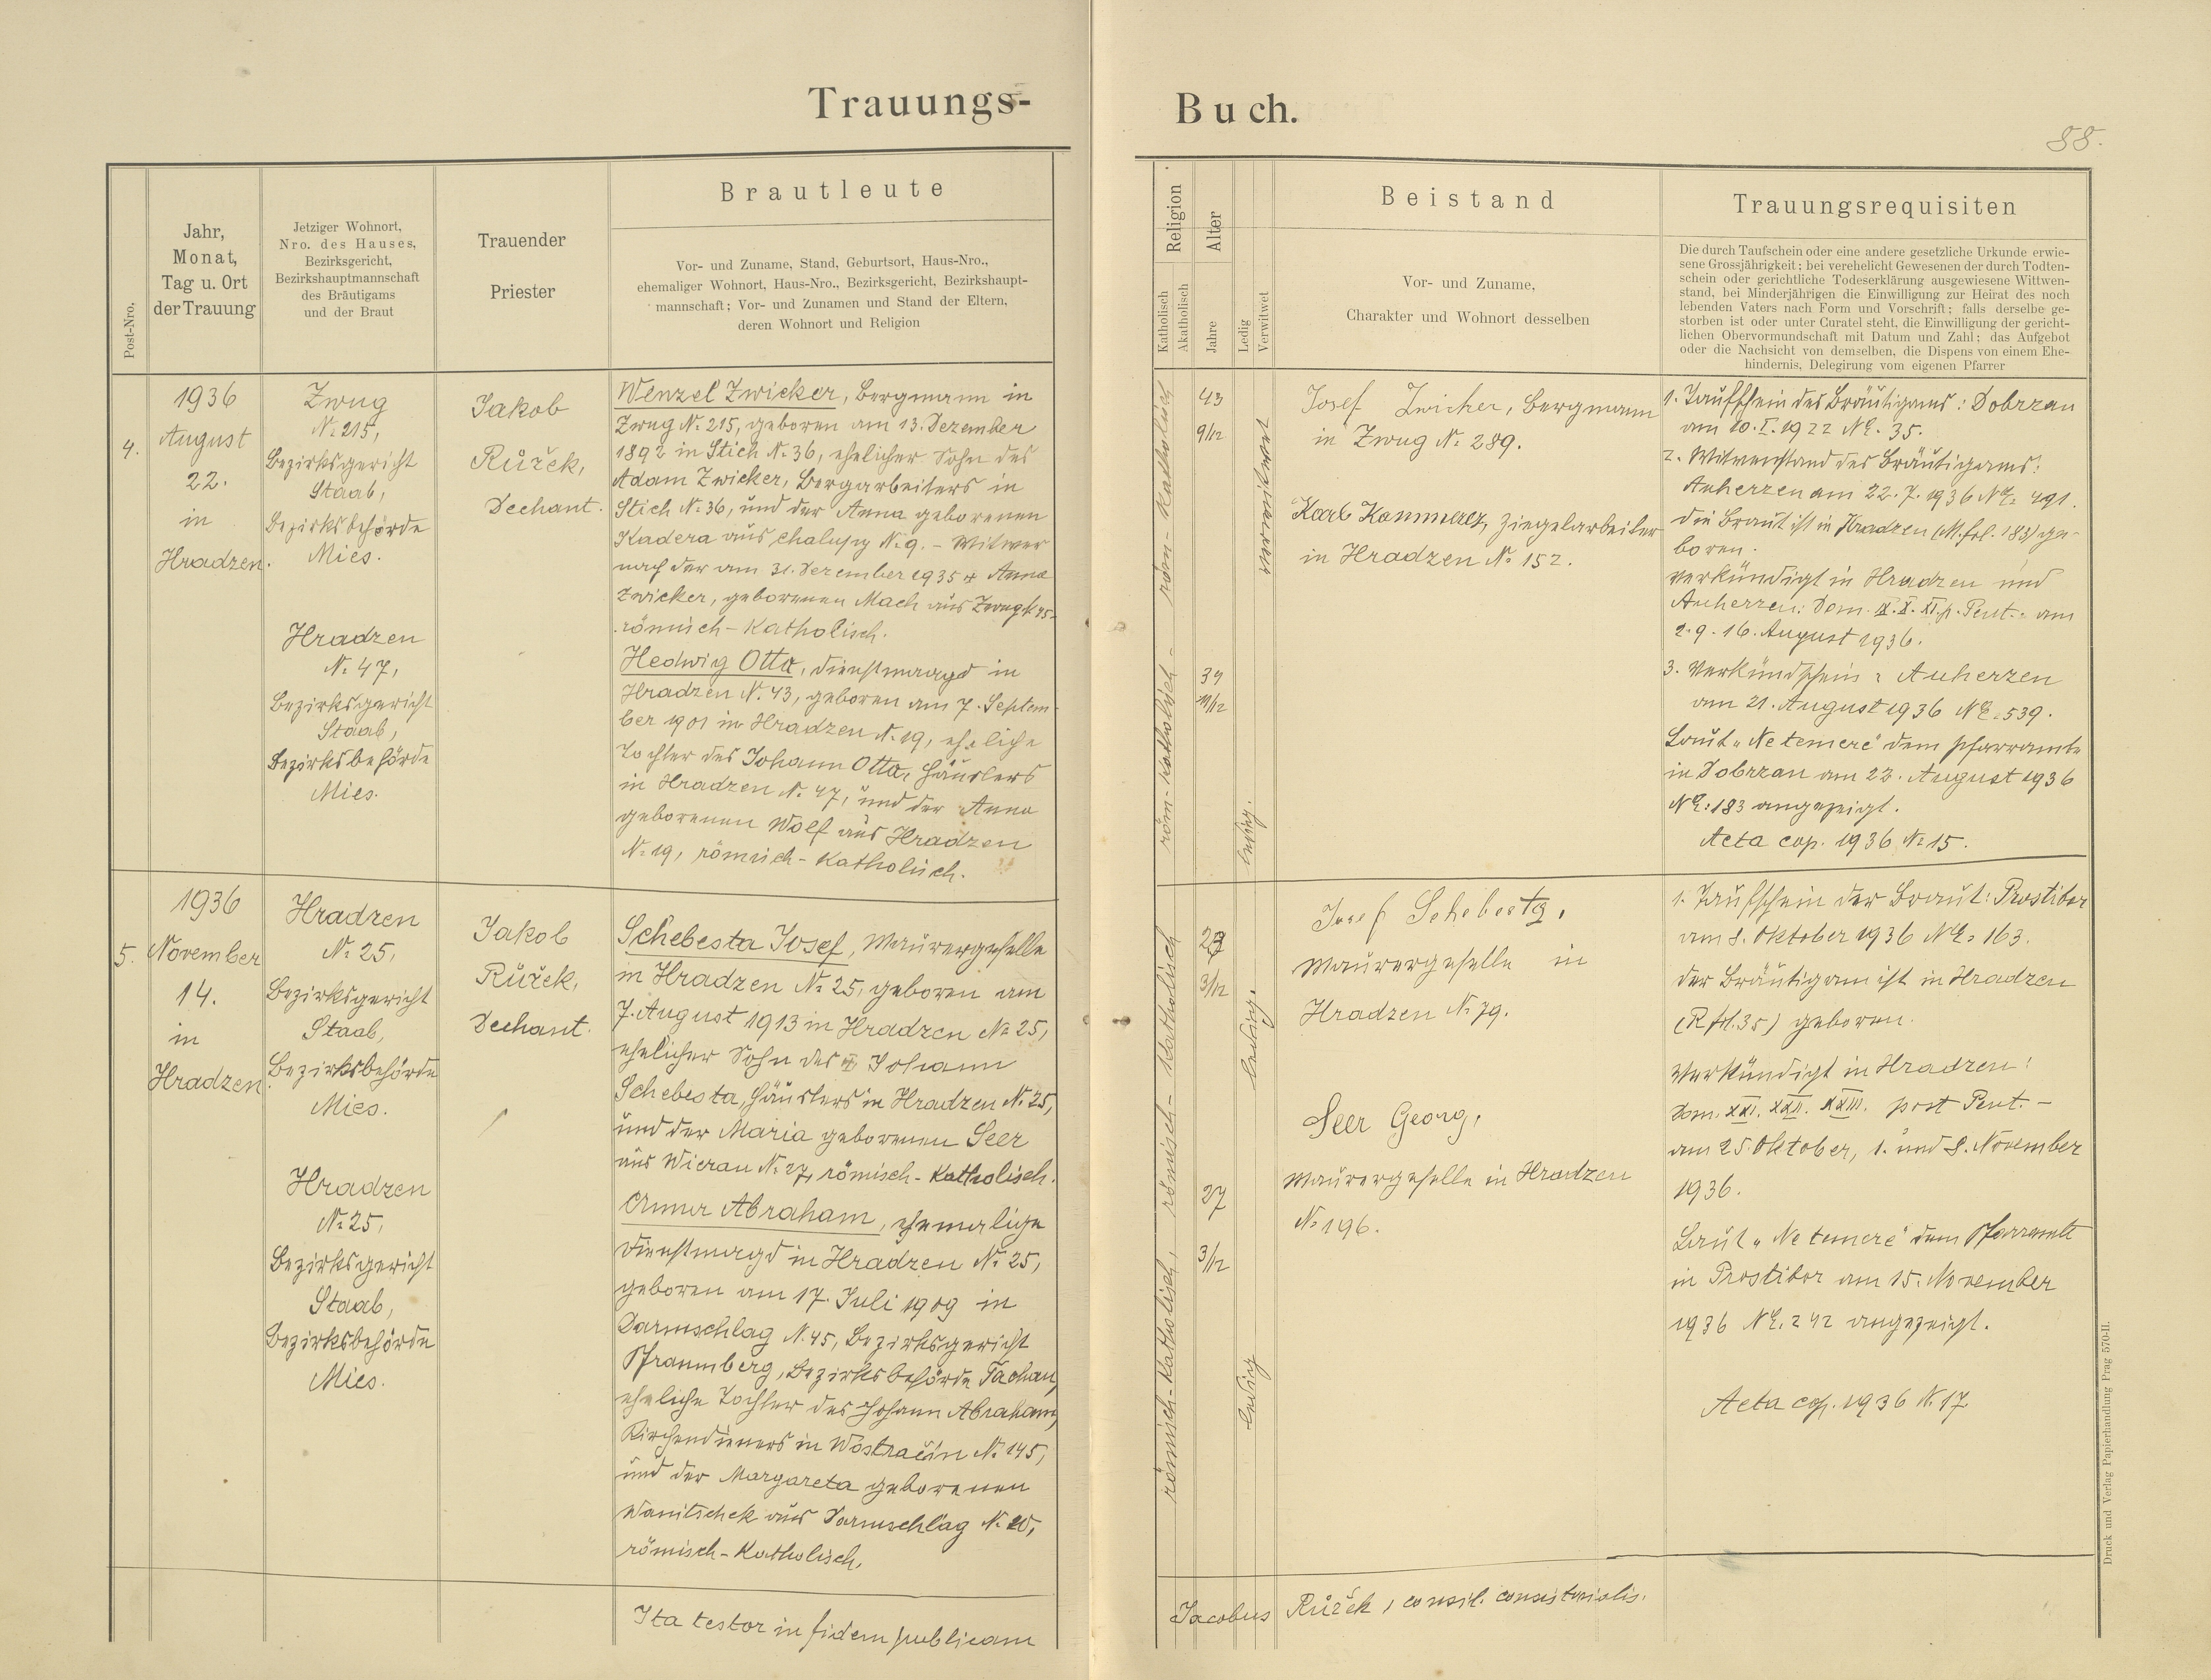 Trauungs-
Buch.
88.
Post-Nro.
Jahr,
Monat,
Tag u. Ort
der Trauung
Jetziger Wohnort,
Nro. des Hauses,
Bezirksgericht,
Bezirkshauptmannschaft
des Bräutigams
und der Braut
Trauender
Priester
Brautleute
Vor- und Zuname, Stand, Geburtsort, Haus-Nro.,
ehemaliger Wohnort, Haus-Nro., Bezirksgericht, Bezirkshaupt-
mannschaft; Vor- und Zunamen und Stand der Eltern,
deren Wohnort und Religion
Religion
Katholisch
Akatholisch
Alter
Jahre
Ledig
Verwitwet
Beistand
Vor- und Zuname,
Charakter und Wohnort desselben
Trauungsrequisiten
Die durch Taufschein oder eine andere gesetzliche Urkunde erwie-
sene Grossjährigkeit; bei verehelicht Gewesenen der durch Todten-
schein oder gerichtliche Todeserklärung ausgewiesene Wittwen-
stand, bei Minderjährigen die Einwilligung zur Heirat des noch
lebenden Vaters nach Form und Vorschrift; falls derselbe ge-
storben ist oder unter Curatel steht, die Einwilligung der gericht-
lichen Obervormundschaft mit Datum und Zahl; das Aufgebot
oder die Nachsicht von demselben, die Dispens von einem Ehe-
hindernis, Delegirung vom eigenen Pfarrer
4.
1936
August
22.
in
Hradzen.
Zwug
N: 215,
Bezirksgericht
Staab,
Bezirksbehörde
Mies.
Hradzen
N: 47,
Bezirksgericht
Staab,
Bezirksbehörde
Mies.
Jakob
Růžek,
Dechant.
Wenzel Zwicker, Bergmann in
Zwug N: 215, geboren am 13. Dezember
1892 in Stich N: 36, ehelicher Sohn des
Adam Zwicker, Bergarbeiters in
Stich N: 36, und der Anna geborenen
Kadera aus Chalupy N: 9. - Witwer
nach der am 31. Dezember 1935 + Anna
Zwicker, geborenen Mach aus Zwug
römisch-katholisch.
Hedwig Otta, Dienstmagd in
Hradzen N: 43, geboren am 7. Septem-
ber 1901 in Hradzen N: 19, eheliche
Tochter des Johann Otta, Häuslers
in Hradzen N: 47, und der Anna
geborenen Wolf aus Hradzen
N: 19, römisch-katholisch.
röm-katholisch
röm-katholisch
43
9/12
34
11/12
verwitwet
ledig.
Josef Zwicker, Bergmann
in Zwug N: 289.
Karl Kammerez, Ziegelarbeiter
in Hradzen N: 152.
1. Taufschein des Bräutigams: Dobrzan
am 10. I. 1922 NE: 35.
2. Witwenstand des Bräutigams:
Auherzen am 22. 7. 1936 NE: 491.
die Braut ist in Hradzen (M. fol. 183) ge-
boren.
Verkündigt in Hradzen und
Auherzen: Dom. IX. X. XI. p. Pent. am
2. 9. 16. August 1936.
3. Verkündschein: Auherzen
am 21. August 1936 NE: 539.
Laut „Ne temere" dem Pfarramte
in Dobrzan am 22. August 1936
NE: 183 angezeigt.
Acta cop. 1936 N: 15.
5.
1936
November
14.
in
Hradzen.
Hradzen
N: 25,
Bezirksgericht
Staab,
Bezirksbehörde
Mies.
Hradzen
N: 25,
Bezirksgericht
Staab,
Bezirksbehörde
Mies.
Jakob
Růžek,
Dechant.
Schebesta Josef, Maurergeselle
in Hradzen N: 25, geboren am
7. August 1913 in Hradzen N: 25,
ehelicher Sohn des Johann
Schebesta, Häuslers in Hradzen N: 25,
und der Maria geborenen Seer
aus Wierau N: 27, römisch-katholisch.
Anna Abraham, ehemalige
Dienstmagd in Hradzen N: 25,
geboren am 17. Juli 1909 in
Darmschlag N: 45, Bezirksgericht
Pfraumberg, Bezirksbehörde Tachau,
eheliche Tochter des Johann Abraham,
Kirchendieners in Wostračin N: 145,
und der Margareta geborenen
Wanitschek aus Darmschlag N: 20,
römisch-katholisch.
römisch-katholisch
römisch-katholisch,
23
3/12
27
3/12
ledig.
ledig
Josef Schebesta,
Maurergeselle in
Hradzen N: 79.
Seer Georg,
Maurergeselle in Hradzen
N: 196.
1. Taufschein der Braut: Prostibor
am 8. Oktober 1936 NE: 163.
der Bräutigam ist in Hradzen
(R fol. 35) geboren.
Verkündigt in Hradzen:
Dom. XXI. XXII. XXIII. post Pent. -
am 25. Oktober, 1. und 8. November
1936.
Laut „Ne temere" dem Pfarramte
in Prostibor am 15. November
1936 NE. 242 angezeigt.
Acta cop. 1936 N: 17.
Ita testor in fidem publicam
Jacobus Růžek, consil. consistorialis.
Druck und Verlag Papierhandlung Prag 570-II.